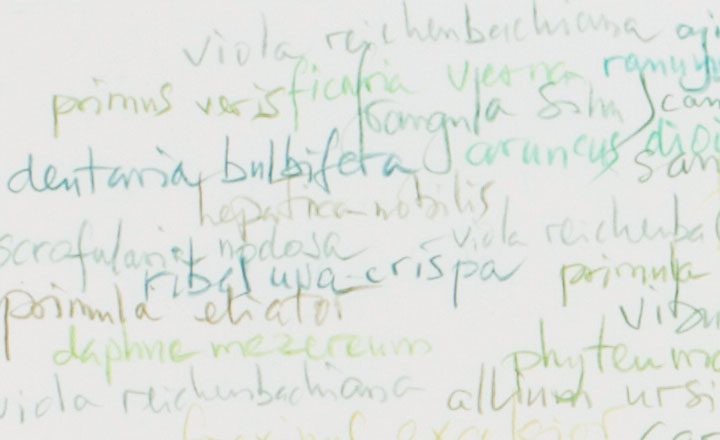 viola reichenbachiana
primus veris ficaria verna ranun
frangula
dentaria bulbifera aruncus dioi
hepatica nobilis san
scrofularia nodosa viola reichenba
ribes uva-crispa primula
primula eliatior vibu
daphne mezereum phyteuma
viola reichenbachiana allium ursi